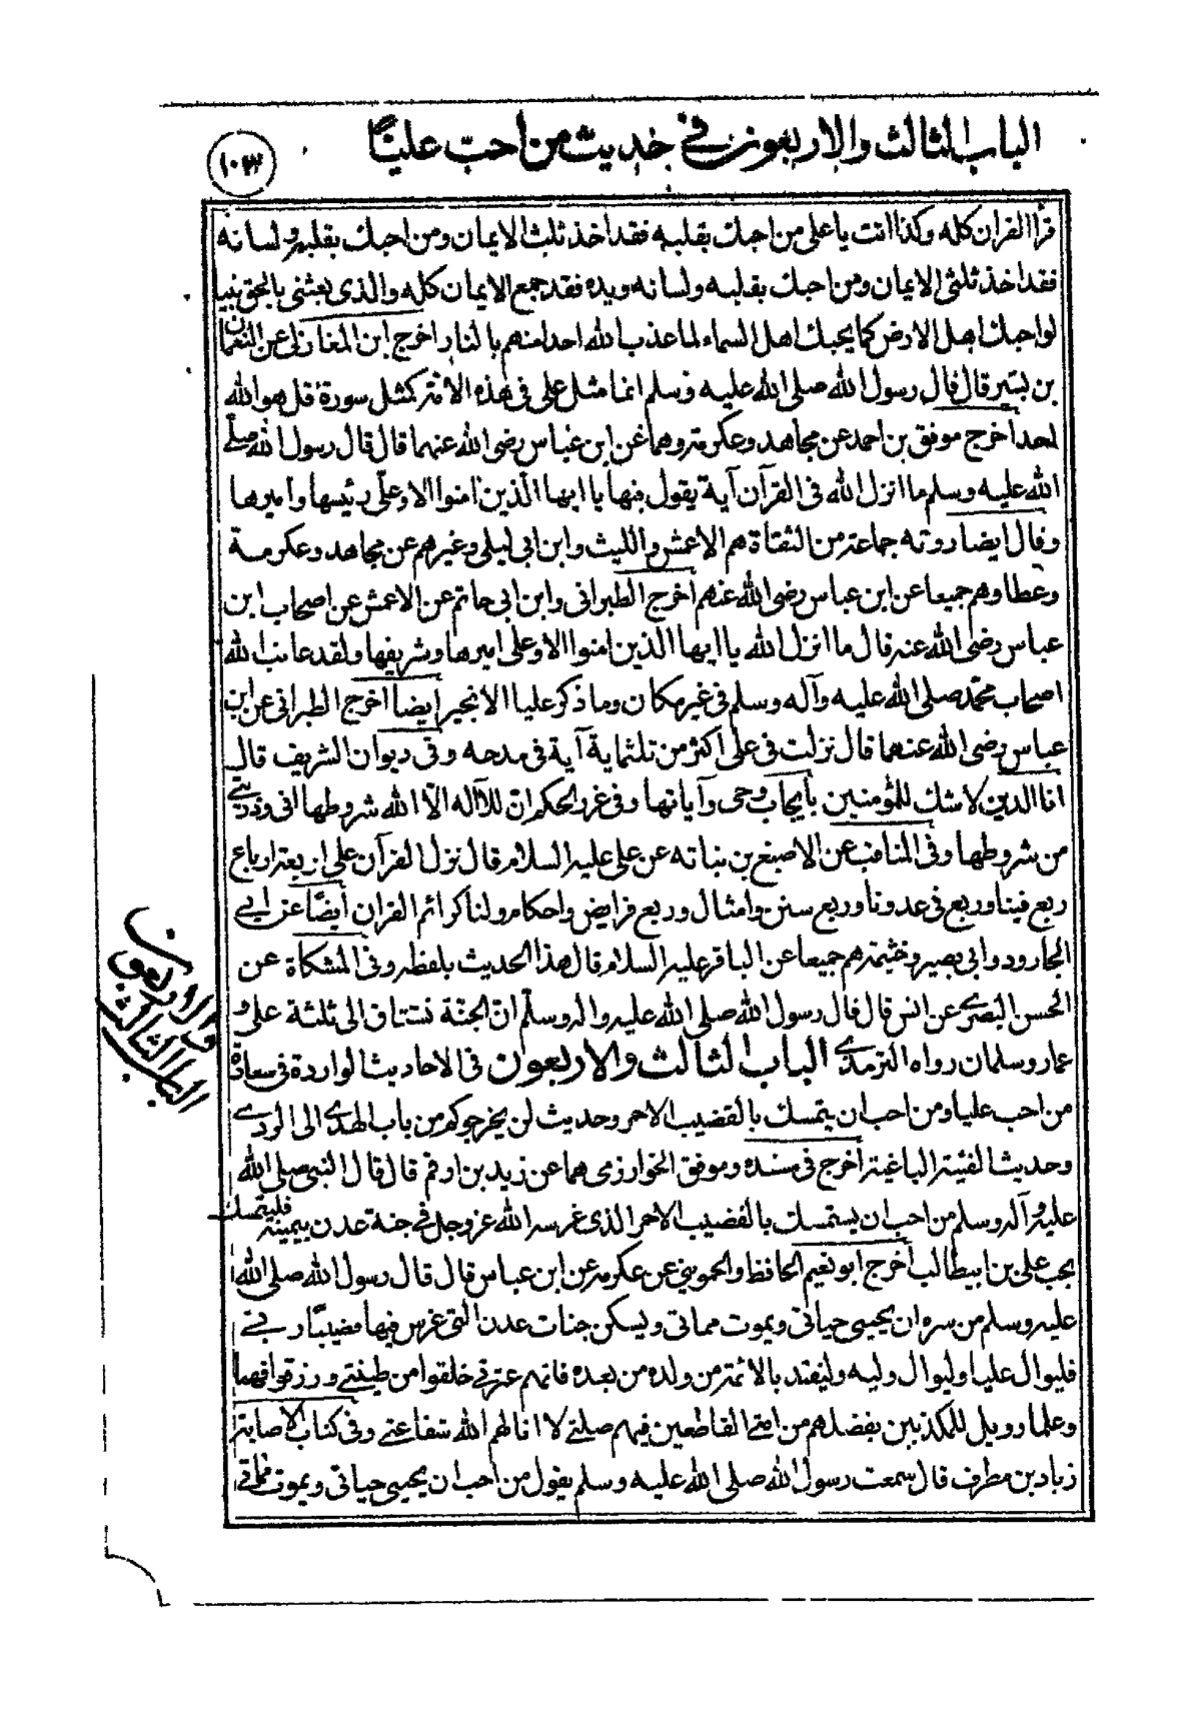 الباب الثالث والاربعون في حديث من احبّ عليّا
١٠٣
قرأ القران كله وكذا انت يا على من احبك بقلبه فقد اخذ ثلث الايمان ومن احبك بقلبه ولسانه
فقد اخذ ثلثى الايمان ومن احبك بقلبه ولسانه ويده فقد جمع الايمان كله والذى بعثنى بالحق نبيا
لو احبك اهل الارض كما يحبك اهل السماء لما عذب الله احدا منهم بالنار اخرج ابن المغازلى عن النعمان
بن بشير قال قال رسول الله صلى الله عليه وسلم انما مثل على فى هذه الامة كمثل سورة قل هو الله
احد اخرج موفق بن احمد عن مجاهد وعكرمة وهما عن ابن عباس رضى الله عنهما قال قال رسول الله صلى
الله عليه وسلم ما انزل الله فى القرآن آية يقول فيها يا ايها الّذين امنوا الا وعلىّ رئيسها واميرها
وقال ايضا روته جماعة من الثقاة هم الاعمش والليث وابن ابى ليلى وغيرهم عن مجاهد وعكرمة
وعطا وهم جميعا عن ابن عباس رضى الله عنهم اخرج الطبرانى وابن ابى حاتم عن الاعمش عن اصحاب ابن
عباس رضى الله عنه قال ما انزل الله يا ايها الذين امنوا الا وعلى اميرها وشريفها ولقد عاتب الله
اصحاب محمّد صلى الله عليه وآله وسلم فى غير مكان وما ذكر عليا الا بخير ايضا اخرج الطبرانى عن ابن
عباس رضى الله عنهما قال نزلت فى على اكثر من ثلثماية آية فى مدحه وفى ديوان الشريف قال
انا الدين لا شك للمؤمنين بآيجاب وحى وآياتها وفى غرر الحكم ان للآاله الّا الله شروطها انى وذريتى
من شروطها وفى المناقب عن الاصبغ بن نباته عن على عليه السلام قال نزل القرآن على اربعة ارباع
ربع فينا وربع فى عدونا وربع سنن وامثال وربع فرايض واحكام ولنا كرائم القران ايضًا عن ابى
الجارود وابى بصير وخثيمة هم جميعا عن الباقر عليه السلام قال هذا الحديث بلفظه وفى المشكاة عن
الحسن البصرى عن انس قال قال رسول الله صلى الله عليه واله وسلم ان الجنّة تشتاق الى ثلثة على و
عمار وسلمان رواه الترمذى الباب الثالث والاربعون فى الاحاديث الواردة فى سعادة
من احب عليا ومن احب ان يتمسك بالقضيب الاحمر وحديث لن يخرجوكم من باب الهدى الى الردى
وحديث الفئية الباغية اخرج فى مسنده وموفق الخوارزمى هما عن زيد بن ارقم قال قال النبى صلى الله
عليه وآله وسلم من احب ان يستمسك بالقضيب الاحمر الذى غرسه الله عزوجل فى جنة عدن بيمينه فليتمسك
بحب على بن ابيطالب اخرج ابو نعيم الحافظ والحموينى عن عكرمة عن ابن عباس قال قال رسول الله صلى الله
عليه وسلم من سره ان يحيى حياتى ويموت مماتى ويسكن جنات عدن التى غرس فيها قضيبًا ربى
فليوال عليا وليوال وليه وليقتد بالائمة من ولده من بعده فانهم عترتى خلقوا من طينتى ورزقوا فهما
وعلما وويل للمكذبين بفضلهم من امتى القاطعين فيهم صلتى لا انالهم الله شفاعتى وفى كتاب الاصابة
زياد بن مطرف قال سمعت رسول الله صلى الله عليه وسلم يقول من احب ان يحيى حياتى ويموت مماتى
الباب الثالث
والاربعون